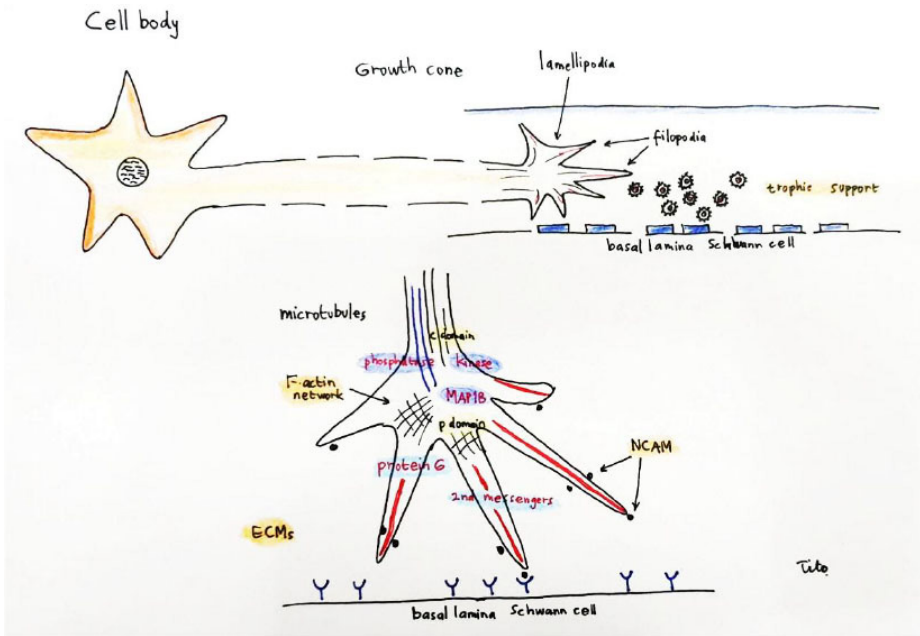 Cell body
Growth cone
lamellipodia
filopodia
trophic support
basal lamina Schwann cell
microtubules
C domain
phosphatase
kinase
F-actin
network
MAP1B
p domain
NCAM
protein G
2nd messengers
ECMs
Tito
basal lamina Schwann cell